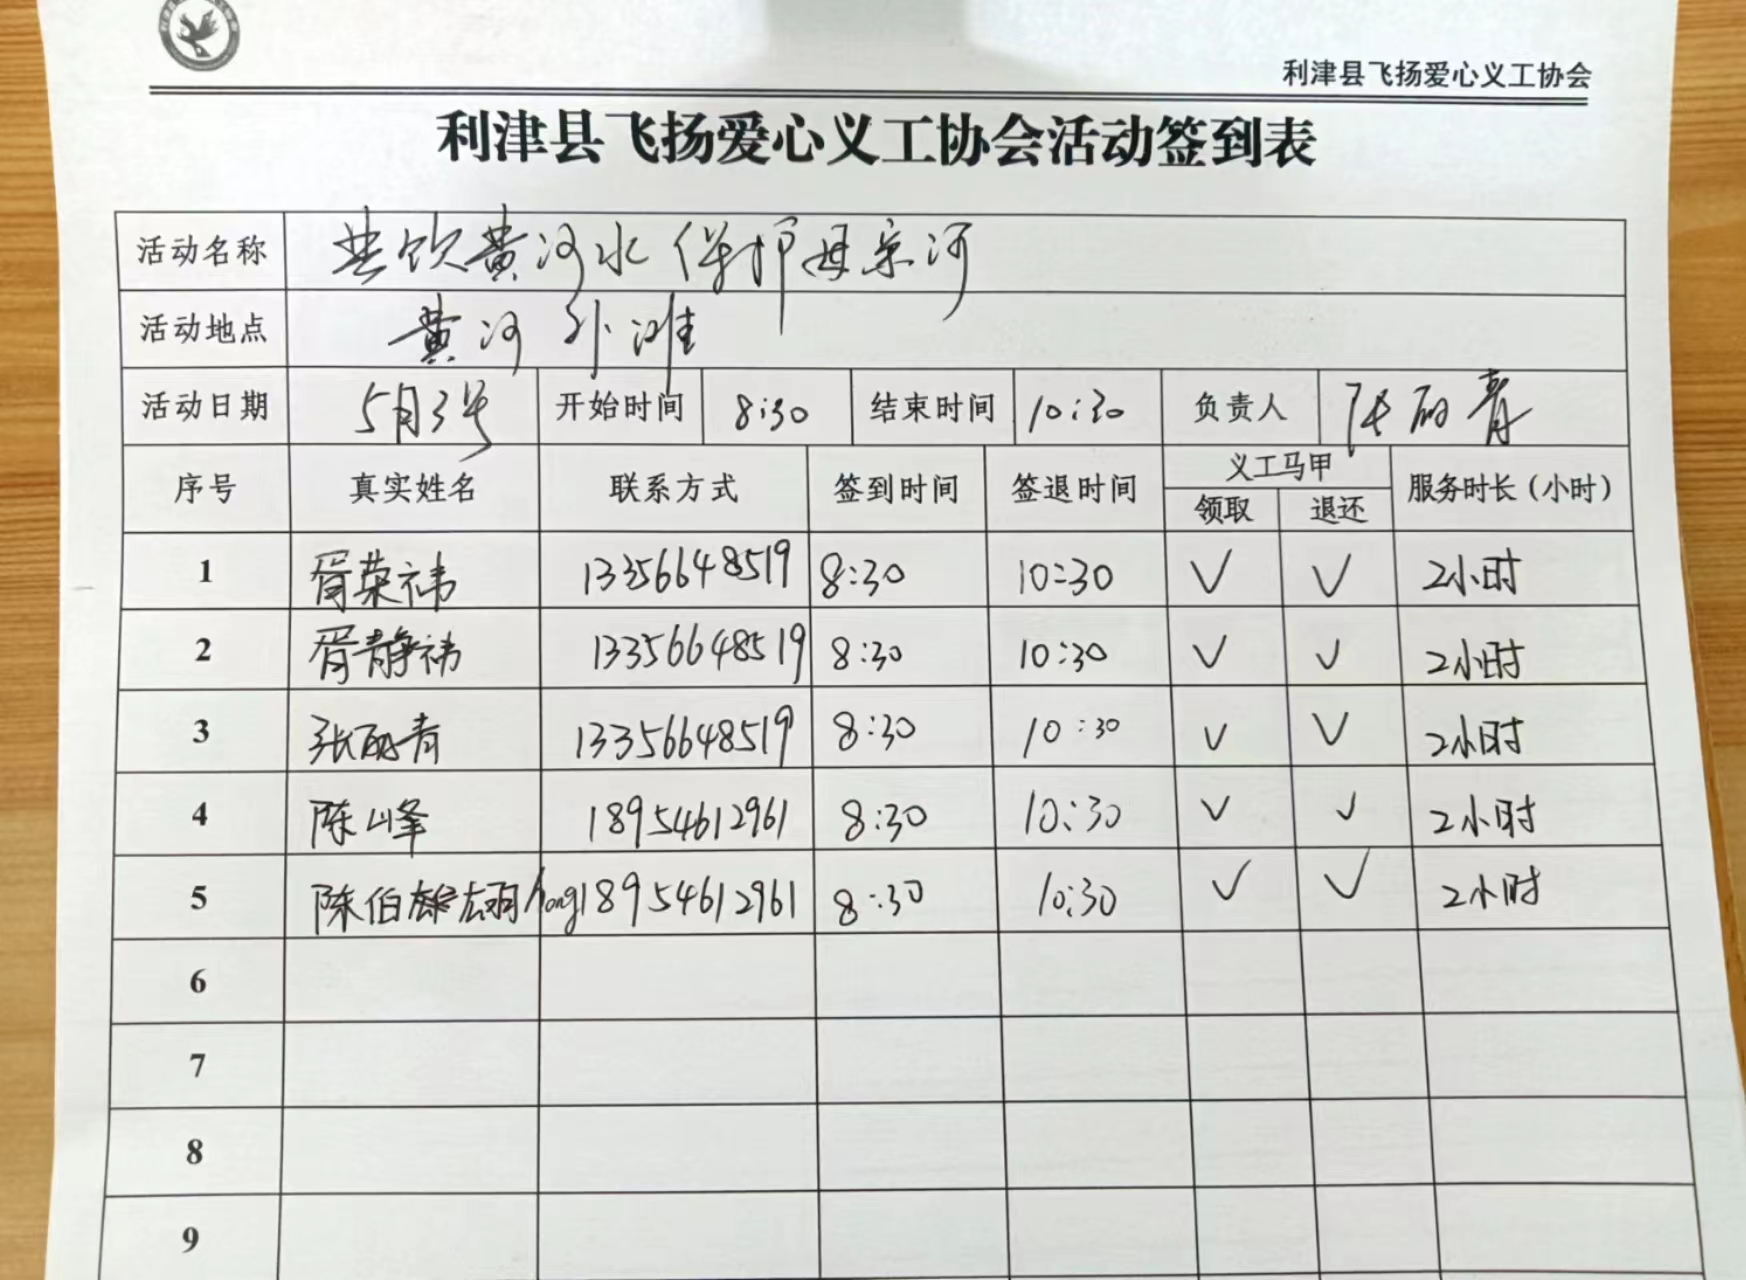 利津县飞扬爱心义工协会
利津县飞扬爱心义工协会活动签到表
活动名称 共饮黄河水 保护母亲河
活动地点 黄河外滩
活动日期 5月3号 开始时间 8:30 结束时间 10:30 负责人 张丽青
序号 真实姓名 联系方式 签到时间 签退时间 义工马甲 领取 退还 服务时长(小时)
1 胥荣祎 13356648519 8:30 10:30 √ √ 2小时
2 胥静祎 13356648519 8:30 10:30 √ √ 2小时
3 张丽青 13356648519 8:30 10:30 √ √ 2小时
4 陈山峰 18954612961 8:30 10:30 √ √ 2小时
5 陈伯雄 hong 18954612961 8:30 10:30 √ √ 2小时
6
7
8
9